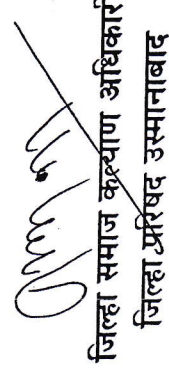 जिल्हा समाज कल्याण अधिकारी
जिल्हा परिषद उस्मानाबाद